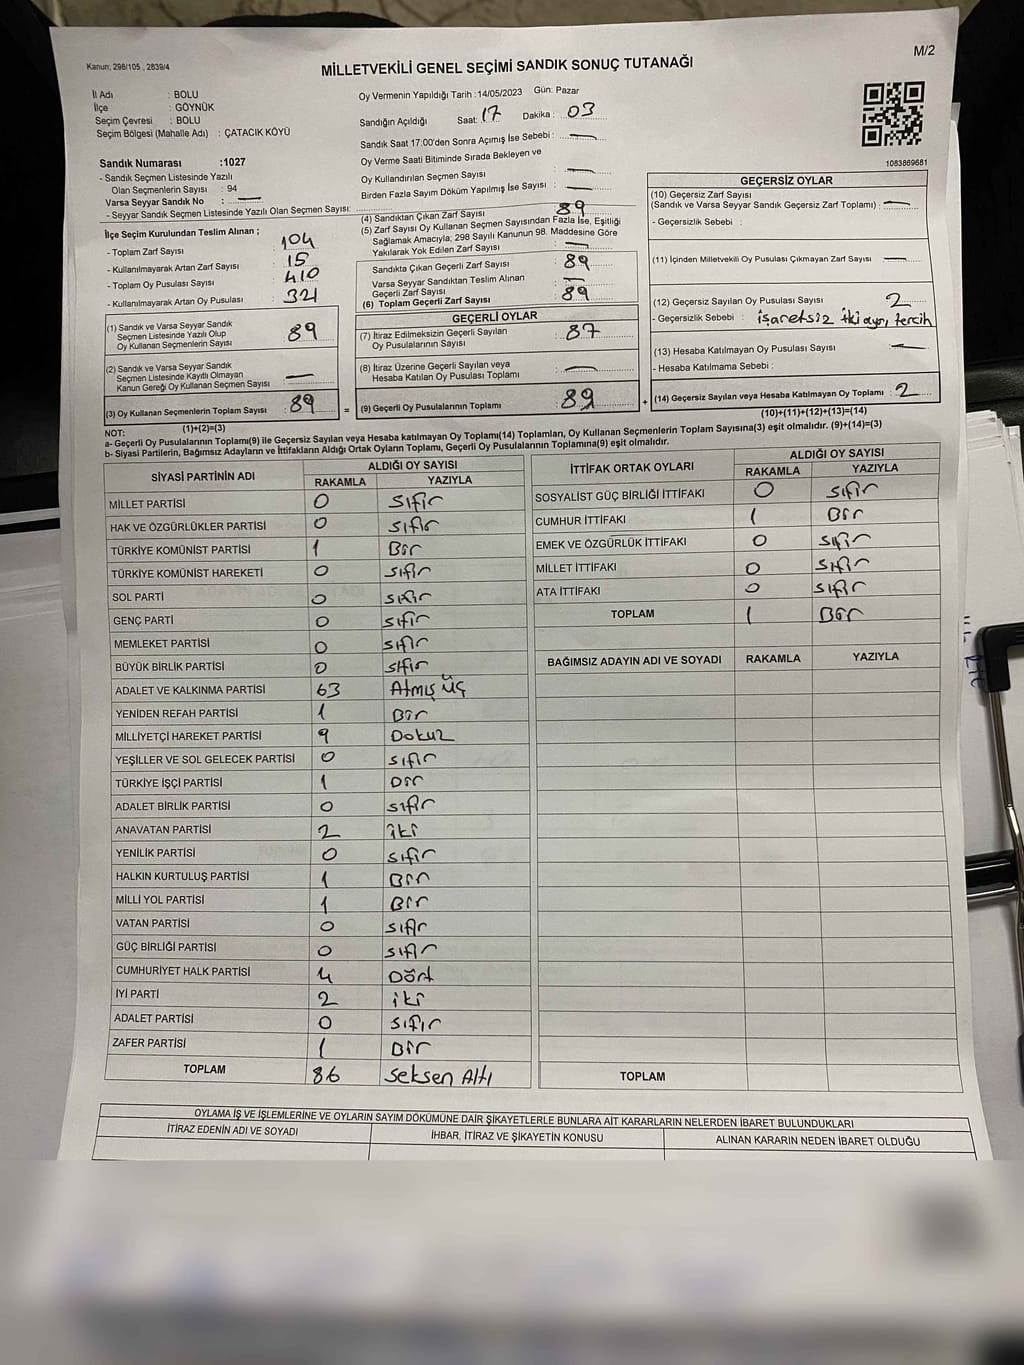 M/2
Kanun; 298/105 , 2839/4
MİLLETVEKİLİ GENEL SEÇİMİ SANDIK SONUÇ TUTANAĞI
İl Adı : BOLU
İlçe : GÖYNÜK
Seçim Çevresi : BOLU
Seçim Bölgesi (Mahalle Adı) : ÇATACIK KÖYÜ
Oy Vermenin Yapıldığı Tarih : 14/05/2023 Gün: Pazar
Sandığın Açıldığı Saat: 17 Dakika : 03
Sandık Saat 17:00'den Sonra Açımış İse Sebebi : —
Oy Verme Saati Bitiminde Sırada Bekleyen ve
Oy Kullandırılan Seçmen Sayısı : —
Birden Fazla Sayım Döküm Yapılmış İse Sayısı : —
1083869681
Sandık Numarası :1027
- Sandık Seçmen Listesinde Yazılı
Olan Seçmenlerin Sayısı : 94
Varsa Seyyar Sandık No : —
- Seyyar Sandık Seçmen Listesinde Yazılı Olan Seçmen Sayısı:
İlçe Seçim Kurulundan Teslim Alınan ;
- Toplam Zarf Sayısı 104
- Kullanılmayarak Artan Zarf Sayısı 15
- Toplam Oy Pusulası Sayısı 410
- Kullanılmayarak Artan Oy Pusulası 321
(1) Sandık ve Varsa Seyyar Sandık
Seçmen Listesinde Yazılı Olup
Oy Kullanan Seçmenlerin Sayısı 89
(2) Sandık ve Varsa Seyyar Sandık
Seçmen Listesinde Kayıtlı Olmayan
Kanun Gereği Oy Kullanan Seçmen Sayısı —
(3) Oy Kullanan Seçmenlerin Toplam Sayısı 89 =
(1)+(2)=(3)
(4) Sandıktan Çıkan Zarf Sayısı 89
(5) Zarf Sayısı Oy Kullanan Seçmen Sayısından Fazla İse, Eşitliği
Sağlamak Amacıyla; 298 Sayılı Kanunun 98. Maddesine Göre
Yakılarak Yok Edilen Zarf Sayısı —
Sandıkta Çıkan Geçerli Zarf Sayısı : 89
Varsa Seyyar Sandıktan Teslim Alınan
Geçerli Zarf Sayısı : —
(6) Toplam Geçerli Zarf Sayısı : 89
GEÇERLİ OYLAR
(7) İtiraz Edilmeksizin Geçerli Sayılan
Oy Pusulalarının Sayısı : 87
(8) İtiraz Üzerine Geçerli Sayılan veya
Hesaba Katılan Oy Pusulası Toplamı : —
(9) Geçerli Oy Pusulalarının Toplamı : 89 +
GEÇERSİZ OYLAR
(10) Geçersiz Zarf Sayısı
(Sandık ve Varsa Seyyar Sandık Geçersiz Zarf Toplamı) : —
- Geçersizlik Sebebi :
(11) İçinden Milletvekili Oy Pusulası Çıkmayan Zarf Sayısı —
(12) Geçersiz Sayılan Oy Pusulası Sayısı 2
- Geçersizlik Sebebi : işaretsiz iki ayrı tercih
(13) Hesaba Katılmayan Oy Pusulası Sayısı —
- Hesaba Katılmama Sebebi :
(14) Geçersiz Sayılan veya Hesaba Katılmayan Oy Toplamı : 2
(10)+(11)+(12)+(13)=(14)
NOT:
a- Geçerli Oy Pusulalarının Toplamı(9) ile Geçersiz Sayılan veya Hesaba katılmayan Oy Toplamı(14) Toplamları, Oy Kullanan Seçmenlerin Toplam Sayısına(3) eşit olmalıdır. (9)+(14)=(3)
b- Siyasi Partilerin, Bağımsız Adayların ve İttifakların Aldığı Ortak Oyların Toplamı, Geçerli Oy Pusulalarının Toplamına(9) eşit olmalıdır.
SİYASİ PARTİNİN ADI ALDIĞI OY SAYISI
RAKAMLA YAZIYLA
MİLLET PARTİSİ 0 sıfır
HAK VE ÖZGÜRLÜKLER PARTİSİ 0 sıfır
TÜRKİYE KOMÜNİST PARTİSİ 1 Bir
TÜRKİYE KOMÜNİST HAREKETİ 0 sıfır
SOL PARTİ 0 sıfır
GENÇ PARTİ 0 sıfır
MEMLEKET PARTİSİ 0 sıfır
BÜYÜK BİRLİK PARTİSİ 0 sıfır
ADALET VE KALKINMA PARTİSİ 63 Atmış Üç
YENİDEN REFAH PARTİSİ 1 Bir
MİLLİYETÇİ HAREKET PARTİSİ 9 Dokuz
YEŞİLLER VE SOL GELECEK PARTİSİ 0 sıfır
TÜRKİYE İŞÇİ PARTİSİ 1 Bir
ADALET BİRLİK PARTİSİ 0 sıfır
ANAVATAN PARTİSİ 2 iki
YENİLİK PARTİSİ 0 sıfır
HALKIN KURTULUŞ PARTİSİ 1 Bir
MİLLİ YOL PARTİSİ 1 Bir
VATAN PARTİSİ 0 sıfır
GÜÇ BİRLİĞİ PARTİSİ 0 sıfır
CUMHURİYET HALK PARTİSİ 4 Dört
İYİ PARTİ 2 iki
ADALET PARTİSİ 0 sıfır
ZAFER PARTİSİ 1 Bir
TOPLAM 86 seksen Altı
İTTİFAK ORTAK OYLARI ALDIĞI OY SAYISI
RAKAMLA YAZIYLA
SOSYALİST GÜÇ BİRLİĞİ İTTİFAKI 0 sıfır
CUMHUR İTTİFAKI 1 Bir
EMEK VE ÖZGÜRLÜK İTTİFAKI 0 sıfır
MİLLET İTTİFAKI 0 sıfır
ATA İTTİFAKI 0 sıfır
TOPLAM 1 Bir
BAĞIMSIZ ADAYIN ADI VE SOYADI RAKAMLA YAZIYLA
TOPLAM
OYLAMA İŞ VE İŞLEMLERİNE VE OYLARIN SAYIM DÖKÜMÜNE DAİR ŞİKAYETLERLE BUNLARA AİT KARARLARIN NELERDEN İBARET BULUNDUKLARI
İTİRAZ EDENİN ADI VE SOYADI İHBAR, İTİRAZ VE ŞİKAYETİN KONUSU ALINAN KARARIN NEDEN İBARET OLDUĞU